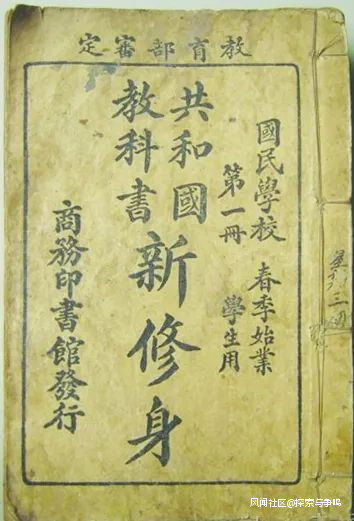 教育部審定
國民學校 春季始業
第一冊 學生用
共和國
教科書
新修身
商務印書館發行
风闻社区@探索与争鸣